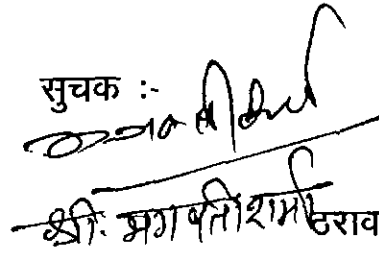 सुचक :-
श्री. भगवती शर्मा ठराव